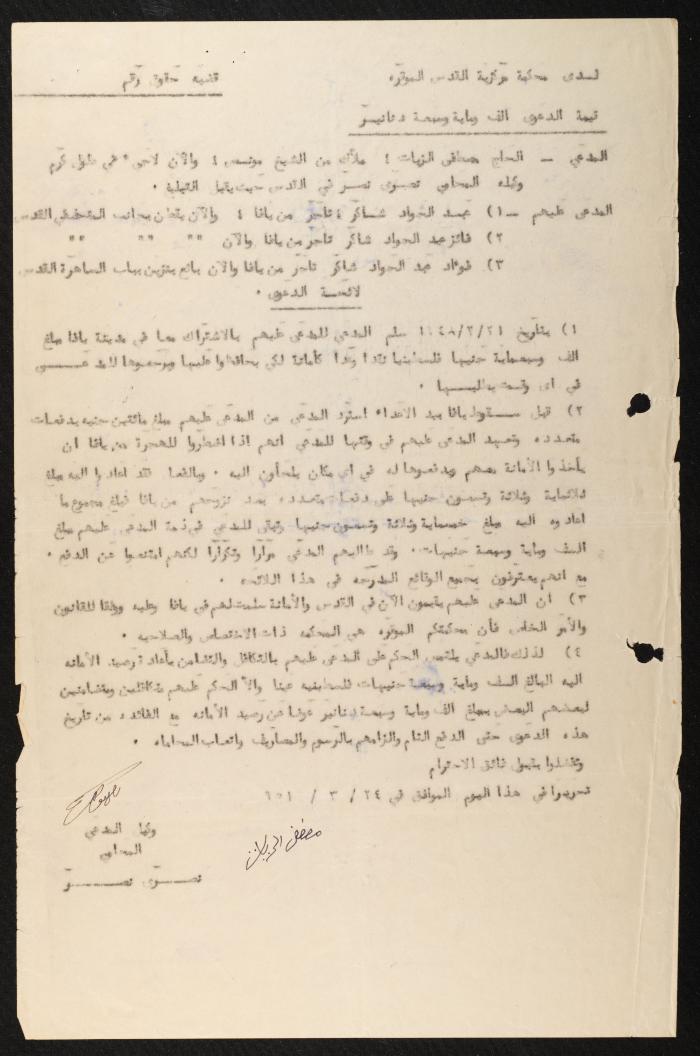 لدى محكمة مركزية القدس الموقره
قضيه حقوق رقم
قيمة الدعوى الف وماية وسبعة دنانير
المدعي – الحاج مصطفى الزيات ؛ ملاك من الشيخ مونس ؛ والآن لاجىء في طول كرم
وكيله المحامي نصري نصر في القدس حيث يقبل التبليغ ·
المدعى عليهم – ١) عبد الجواد شاكر ؛ تاجر من يافا ؛ والآن يقطن بجانب المتحف في القدس
٢) فائز عبد الجواد شاكر تاجر من يافا والآن " " " " " "
٣) فؤاد عبد الجواد شاكر تاجر من يافا والآن بائع بنزين بباب الساهرة القدس
لائحة الدعوى ·
١) بتاريخ ٢١/٢/١٩٤٨ سلم المدعي للمدعى عليهم بالاشتراك معا في مدينة يافا مبلغ
الف وسبعماية جنيها فلسطينيا نقدا وعدا كأمانة لكي يحافظوا عليها ويرجعوها للمدعي
في اى وقت يطلبها ·
٢) قبل سقوط يافا بيد الاعداء استرد المدعي من المدعى عليهم مبلغ مائتين جنيه بدفعات
متعدده وتعهد المدعى عليهم في وقتها للمدعي انهم إذا اضطروا للهجرة من يافا ان
يأخذوا الأمانة معهم ويدفعوها له في اى مكان يلجأون اليه · وبالفعل فقد اعادوا اليه مبلغ
ثلاثماية وثلاثة وتسعون جنيها على دفعات متعدده بعد نزوحهم من يافا فبلغ مجموع ما
اعادوه اليه مبلغ خمسماية وثلاثة وتسعون جنيها وتبقى للمدعي في ذمة المدعى عليهم مبلغ
الف وماية وسبعة جنيهات · وقد طالبهم المدعي مرارا وتكرارا لكنهم امتنعوا عن الدفع ·
مع انهم يعترفون بجميع الوقائع المدرجه في هذا اللائحه ·
٣) ان المدعى عليهم يقيمون الآن في القدس والأمانة سلمت لهم في يافا وعليه ووفقا للقانون
والأمر الخاص فأن محكمتكم الموقره هي المحكمه ذات الاختصاص والصلاحيه ·
٤) لذلك فالمدعي يلتمس الحكم على المدعى عليهم بالتكافل والتضامن بأعادة رصيد الأمانه
اليه البالغ الف وماية وسبعة جنيهات فلسطينيه عينا والا الحكم عليهم متكافلين ومتضامنين
لبعضهم البعض بمبلغ الف وماية وسبعة دنانير عوضا عن رصيد الأمانه مع الفائده من تاريخ
هذه الدعوى حتى الدفع التام والزامهم بالرسوم والمصاريف واتعاب المحاماه ·
وتفضلوا بقبول فائق الاحترام
تحريرا في هذا اليوم الموافق في ٢٤ / ٣ / ٩٥١
وكيل المدعي
المحامي
نصري نصر
مصطفى الزيات